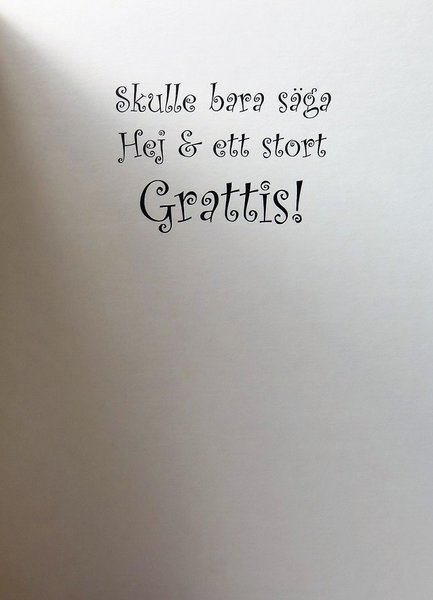 Skulle bara säga
Hej & ett stort
Grattis!